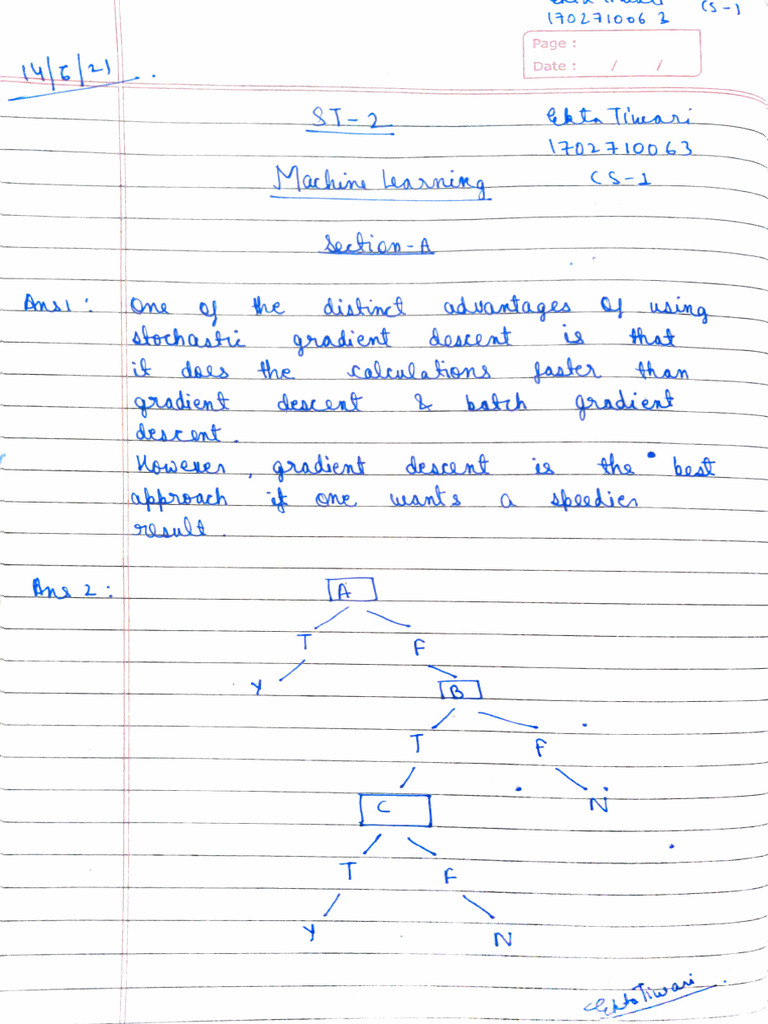 CS-1
1702710063
Page :
Date : / /
14/6/21
ST-2
Ekta Tiwari
1702710063
Machine Learning
CS-1
Section-A
Ans1 : One of the distinct advantages of using
stochastic gradient descent is that
it does the calculations faster than
gradient descent & batch gradient
descent.
However, gradient descent is the best
approach if one wants a speedier
result.
Ans 2 :
A
T F
Y B
T F
C N
T F
Y N
Ekta Tiwari